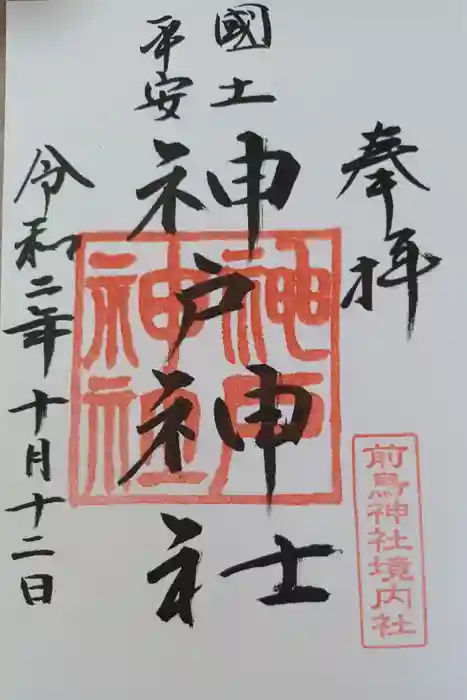 奉拝
前鳥神社境内社
國土
平安
神戸神社
神戸
神社
令和二年十月十二日